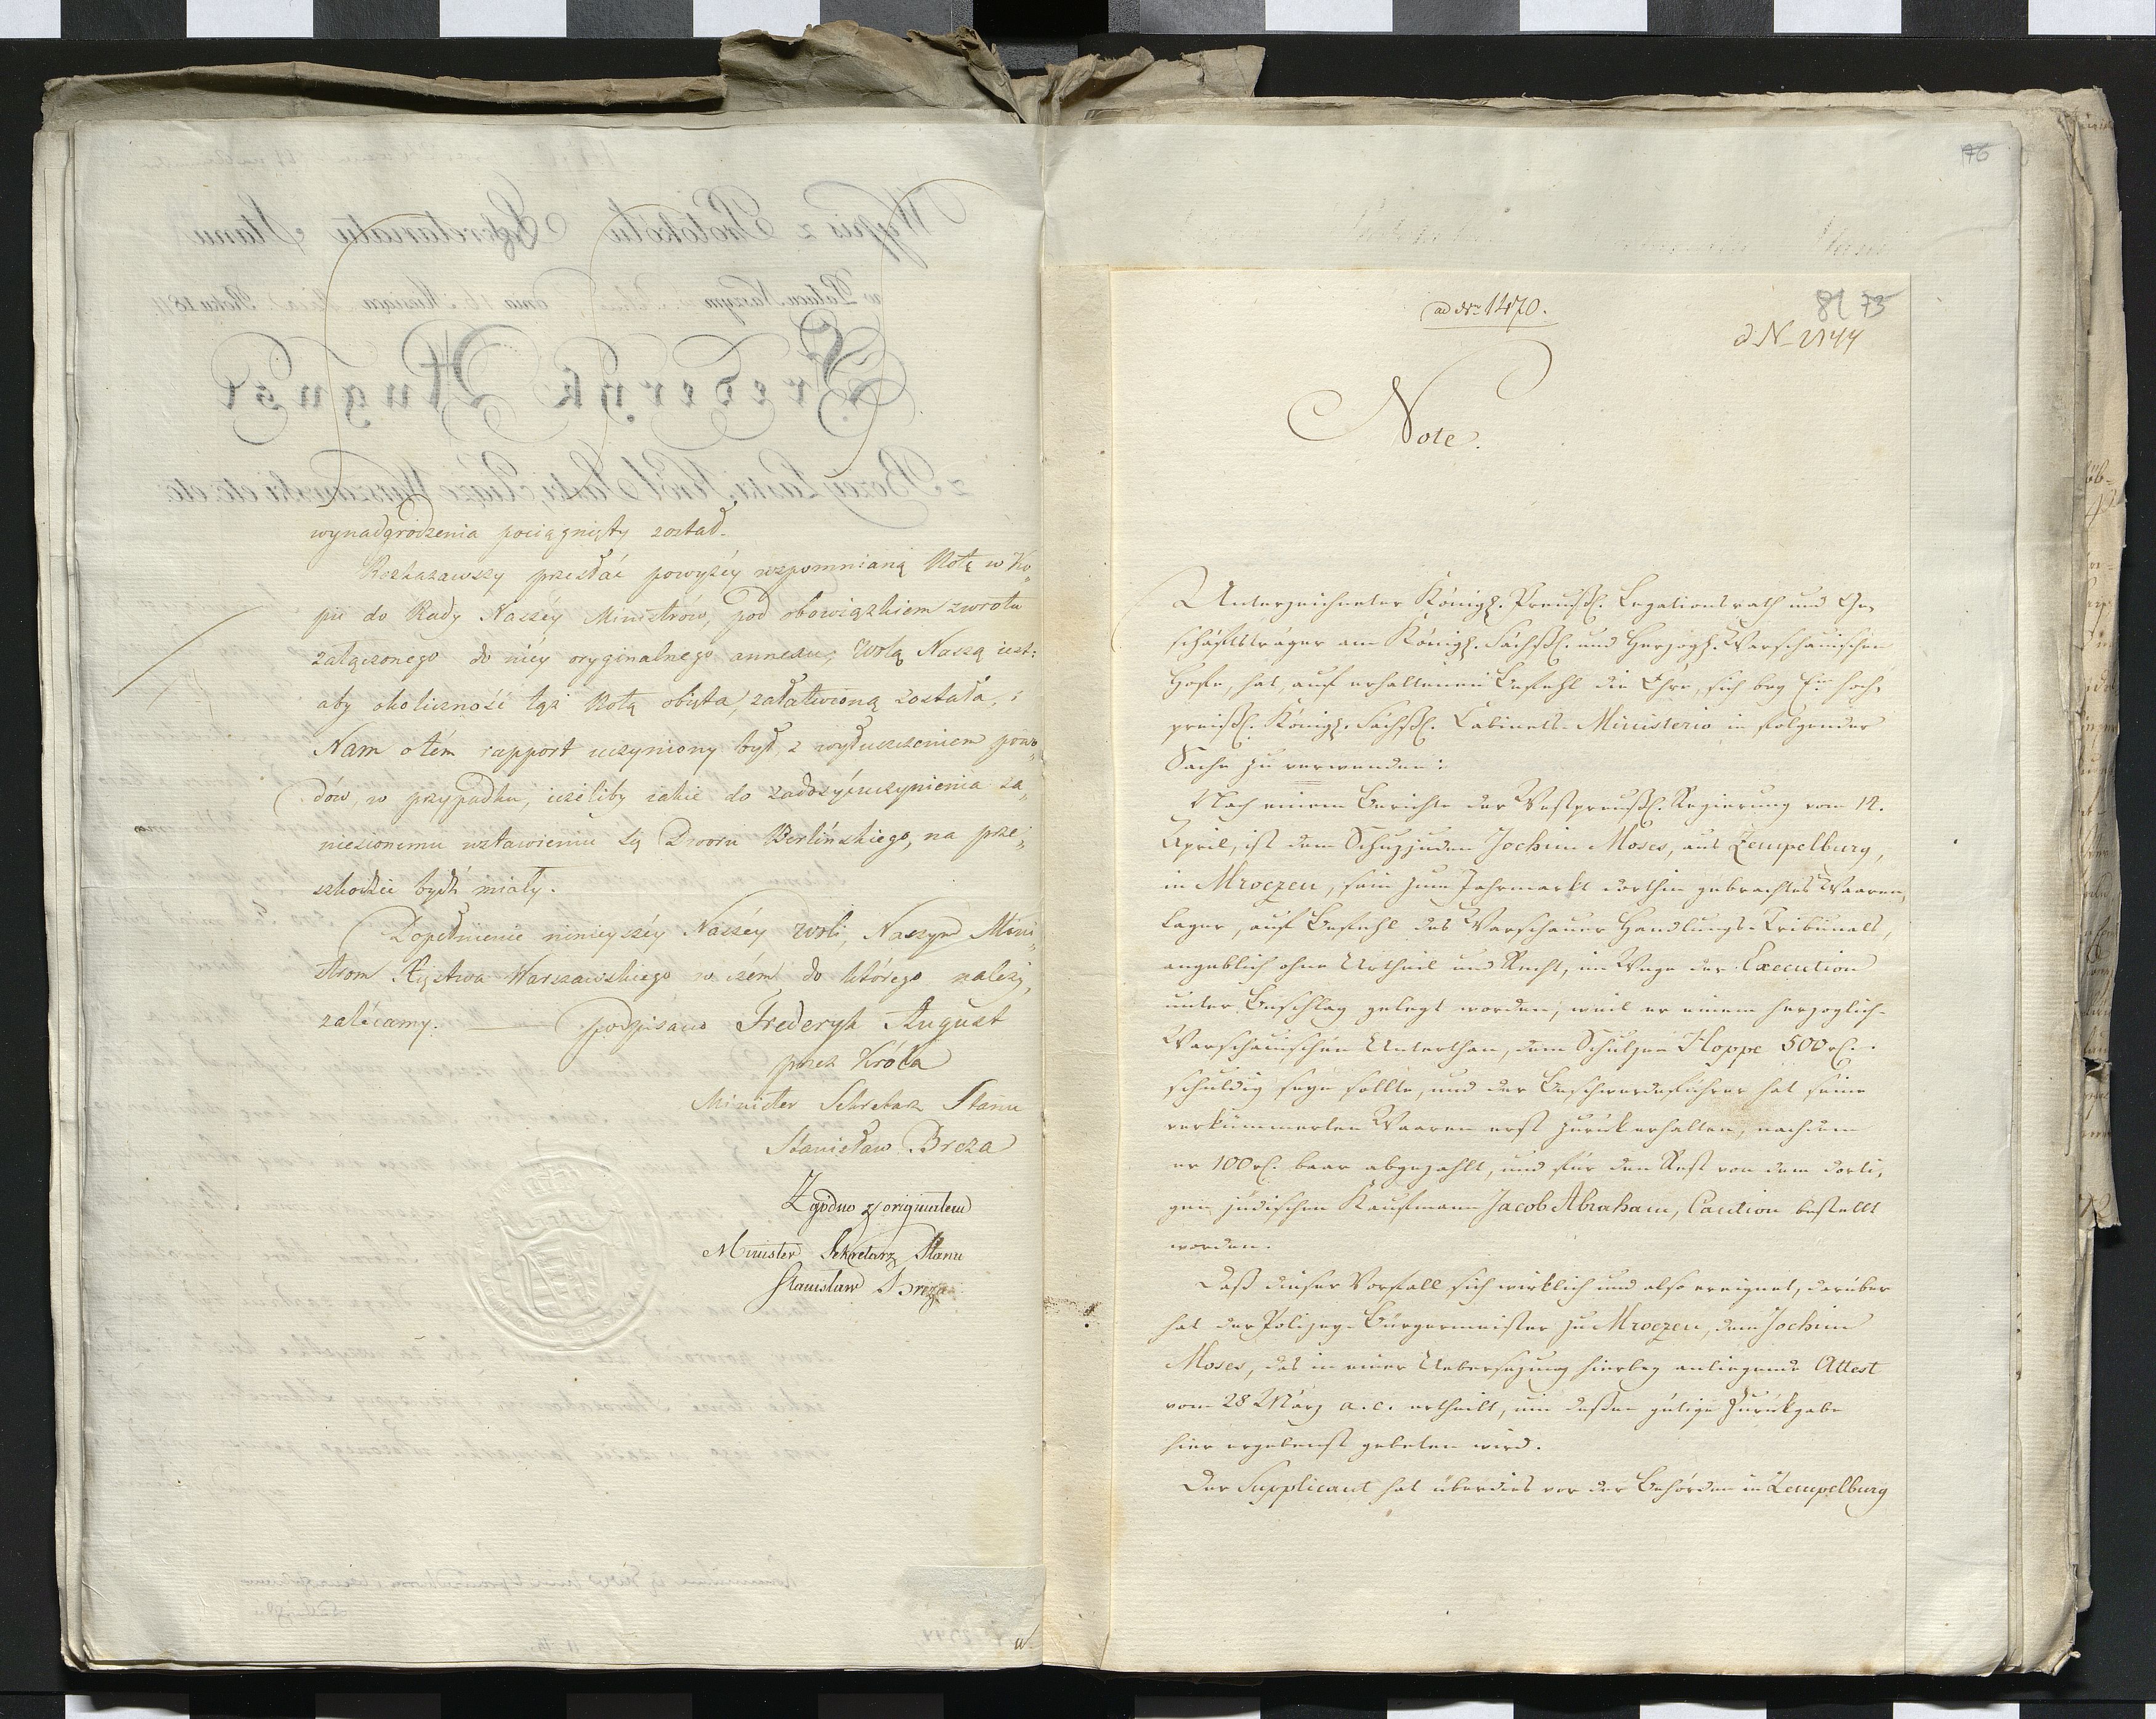 wynadgrodzenia pociągnięty został.
Rozkazawszy przesłać powyżéy wspomnianą Notę w Ko„
pii do Rady Naszéy Ministrów, pod obowiązkiem zwrotu
załączonego do niéy oryginalnego annexu, Wolą Naszą iest:
aby okoliczność tąż Notą obięta, załatwioną została, i
Nam o tém rapport uczyniony był, z wyłuszczeniem powo„
dów, w przypadku, ieżeliby iakie do zadosyćuczynienia za„
niesionemu wstawieniu się Dworu Berlińskiego, na prze„
szkodzie bydź miały.
Dopełnienie ninieyszéy Naszéy woli, Naszym Mini„
strom Xięstwa Warszawskiego w czém do którego należy,
zalécamy. — podpisano Frederyk August
przez Króla
Minister Sekretarz Stanu
Stanisław Breza
Zgodno z originałem
Minister Sekretarz Stanu
Stanisław Breza
76
ad Nr. 1470.
81 73
d N 2144
Note.
Unterzeichneter Königl. Preußl. Legationsrath und Ge„
schäftsträger am Königl. Sächßl. und Herzogl. Warschauischen
Hofe, hat, auf erhaltenen Befehl die Ehre, sich bey Em hoch„
preißl. Königl. Sächßl. Cabinets-Ministerio in folgender
Sache zu verwenden:
Nach einem Berichte der Westpreußl. Regierung vom 12.
April, ist dem Schuzjuden Jochim Moses, aus Zempelburg,
in Mroczen, sein zum Jahrmarkt dorthin gebrachtes Waaren„
lager, auf Befehl des Warschauer Handlungs-Tribunals,
angeblich ohne Urtheil und Recht, im Wege der Execution
unter Beschlag gelegt worden, weil er einem herzoglich-
Warschauischen Unterthan, dem Schulzen Hoppe 500 rl.
schuldig seyn sollte, und der Beschwerdeführer hat seine
verkümmerten Waaren erst zurück erhalten, nachdem
er 100 rl. baar abgezahlt, und für den Rest von dem dorti„
gen jüdischen Kaufmann Jacob Abraham, Caution bestellt
worden.
Daß dieser Vorfall sich wirklich und also ereignet, darüber
hat der Polizey-Bürgermeister zu Mroczen, dem Jochim
Moses, das in einer Uebersezung hierbey anliegende Attest
vom 28 März a. c. ertheilt, um deßen gütige Zurückgabe
hier ergebenst gebeten wird.
Der Supplicant hat überdies vor der Behörden in Zempelburg